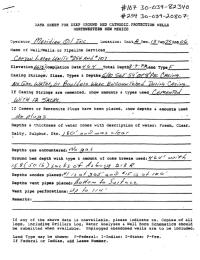 #167 30-039-82340
#259 30-039-20807
DATA SHEET FOR DEEP GROUND BED CATHODIC PROTECTION WELLS
NORTHWESTERN NEW MEXICO
Operator Meridian Oil Inc. Location: Unit
Name of Well/Wells or Pipeline Serviced
Canyon Largo Unit #
Elevation Completion Date Total Depth Land Type F
Casing Strings, Sizes, Types & Depths
If Casing Strings are cemented, show amounts & types used Cemented
With 12 Sacks.
If Cement or Bentonite Plugs have been placed, show depths & amounts used
No Plugs
Depths & thickness of water zones with description of water: Fresh, Clear,
Salty, Sulphur, Etc. 150' and was clear
Depths gas encountered: No gas
Ground bed depth with type & amount of coke breeze used: 464' with
Depths anodes placed:
Depths vent pipes placed: Bottom to Surface
Vent pipe perforations: Up to
If any of the above data is unavailable, please indicate so. Copies of all
logs, including Drillers Log, Water Analyses & Well Bore Schematics should
be submitted when available. Unplugged abandoned wells are to be included.
Land Type may be shown: F-Federal; I-Indian; S-State; P-Fee.
If Federal or Indian, add Lease Number.